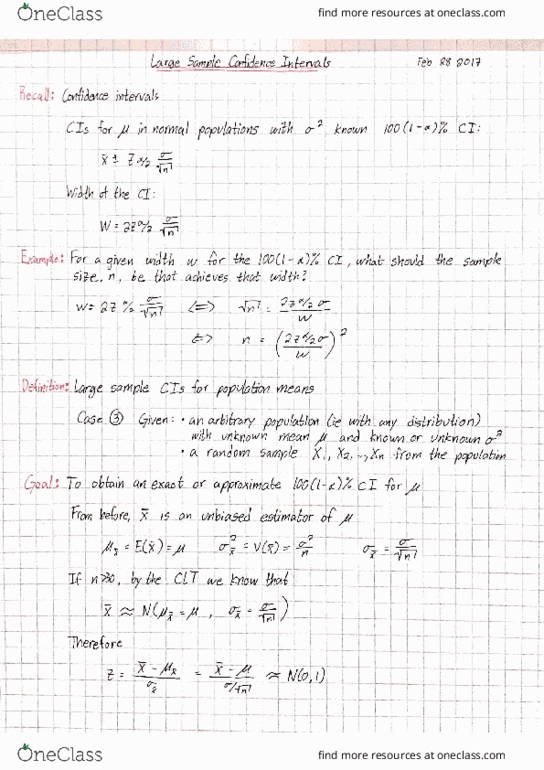 OneClass find more resources at oneclass.com
Large Sample Confidence Intervals Feb 28 2017
Recall: Confidence intervals
CIs for μ in normal populations with σ² known 100(1-α)% CI:
x̄ ± Z α/2 σ/√n
Width of the CI:
W = 2Z α/2 σ/√n
Example: For a given width w for the 100(1-α)% CI, what should the sample
size, n, be that achieves that width?
W = 2Z α/2 σ/√n <=> √n = 2Z α/2 σ / W
<=> n = (2Z α/2 σ / W)²
Definition: Large sample CIs for population means
Case ③ Given: • an arbitrary population (ie with any distribution)
with unknown mean μ and known or unknown σ²
• a random sample X1, X2, .., Xn from the population
Goal: To obtain an exact or approximate 100(1-α)% CI for μ
From before, x̄ is an unbiased estimator of μ
μx̄ = E(x̄) = μ σ²x̄ = V(x̄) = σ²/n σx̄ = σ/√n
If n≥30, by the CLT we know that
x̄ ≈ N(μx̄ = μ, σx̄ = σ/√n)
Therefore
Z = x̄ - μx̄ / σx̄ = x̄ - μ / σ/√n ≈ N(0,1)
OneClass find more resources at oneclass.com